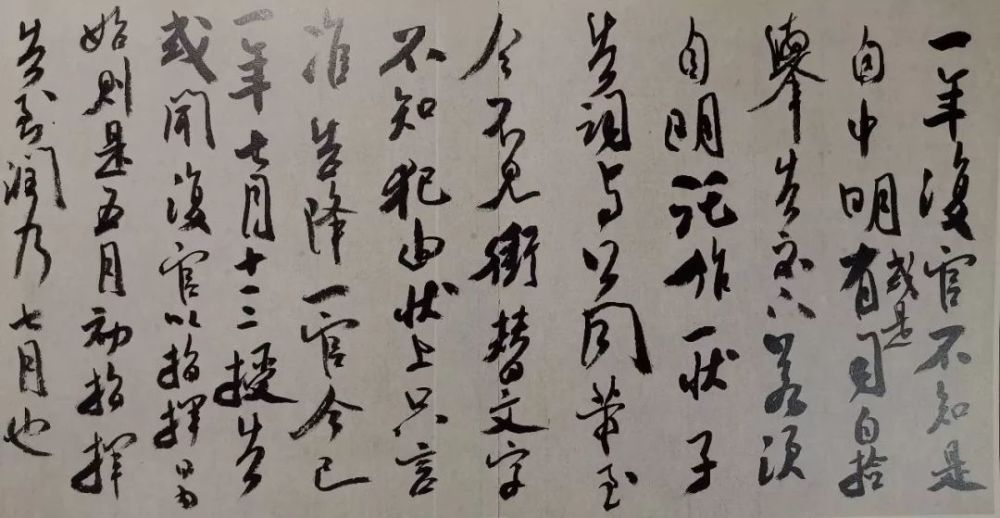 一年復官不知是
自申明有或是司自拾
舉告示下若須
自明託作一狀子
告詞与公同帶至
今不見衝替文字
不知犯由狀上只言
准告降一官今已
一年七月十二授告
或聞復官以指揮日為
始則是五月初指揮
告到潤乃七月也